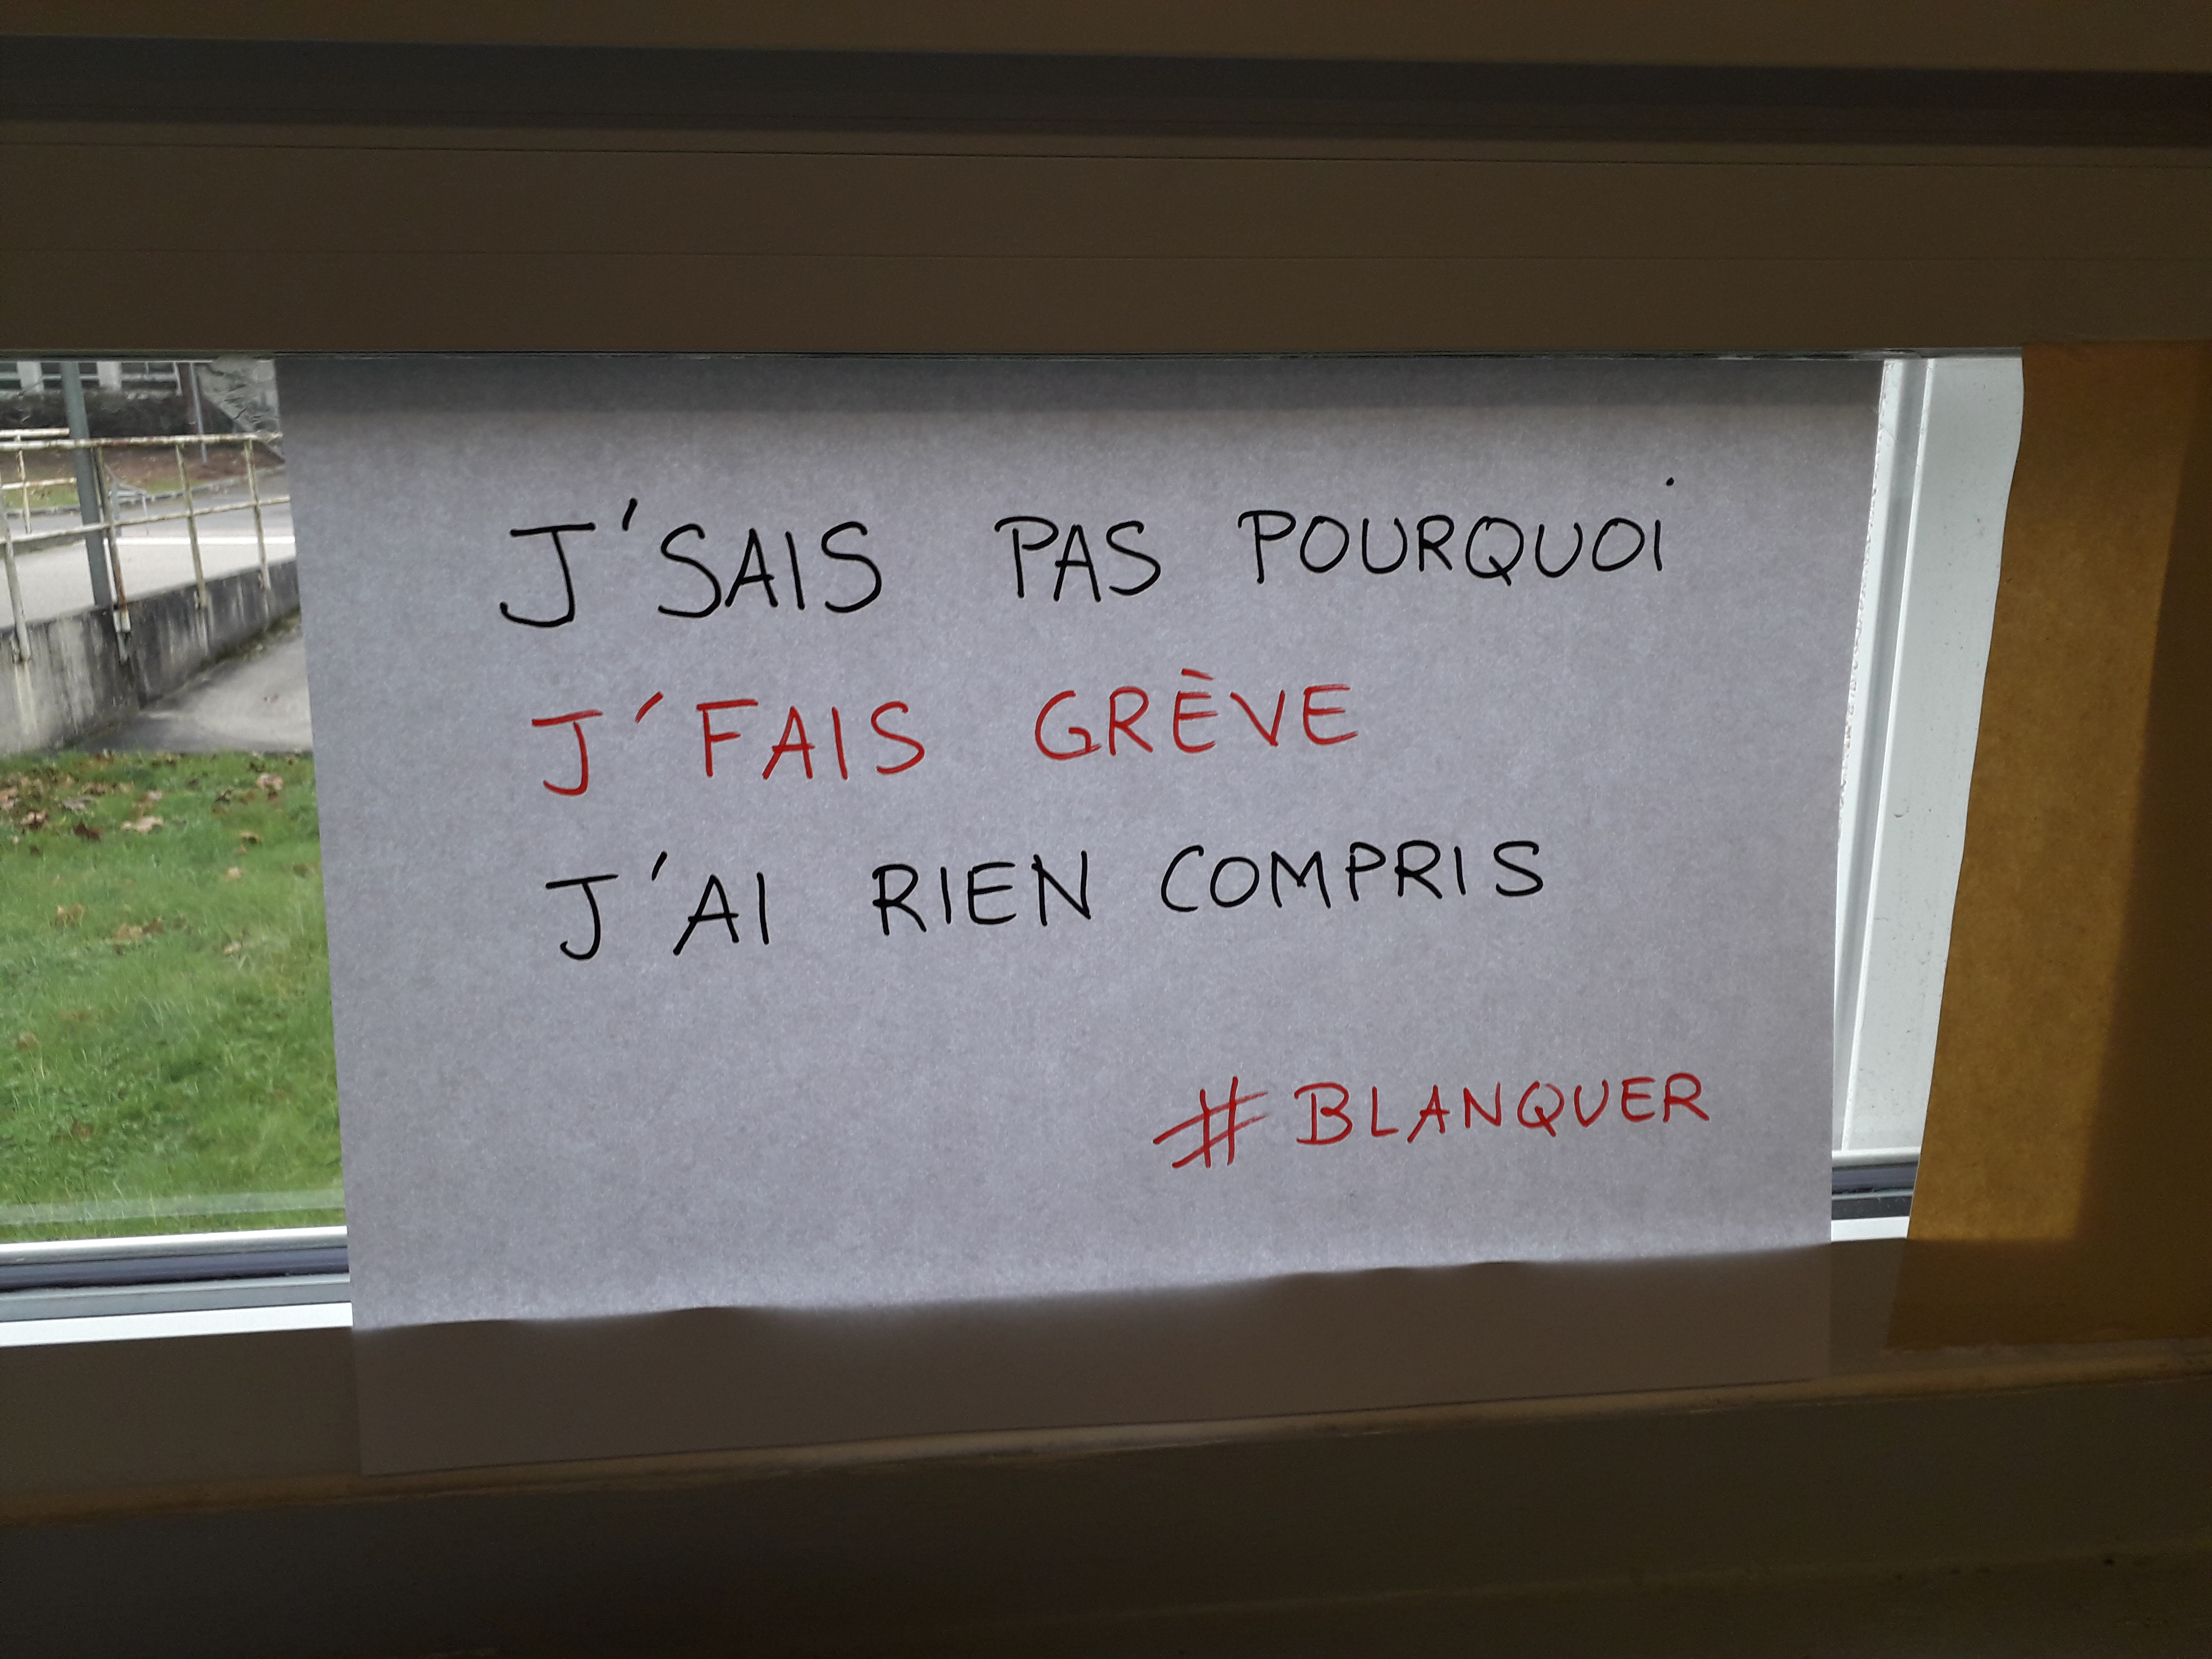 J'SAIS PAS POURQUOI
J'FAIS GRÈVE
J'AI RIEN COMPRIS
#BLANQUER